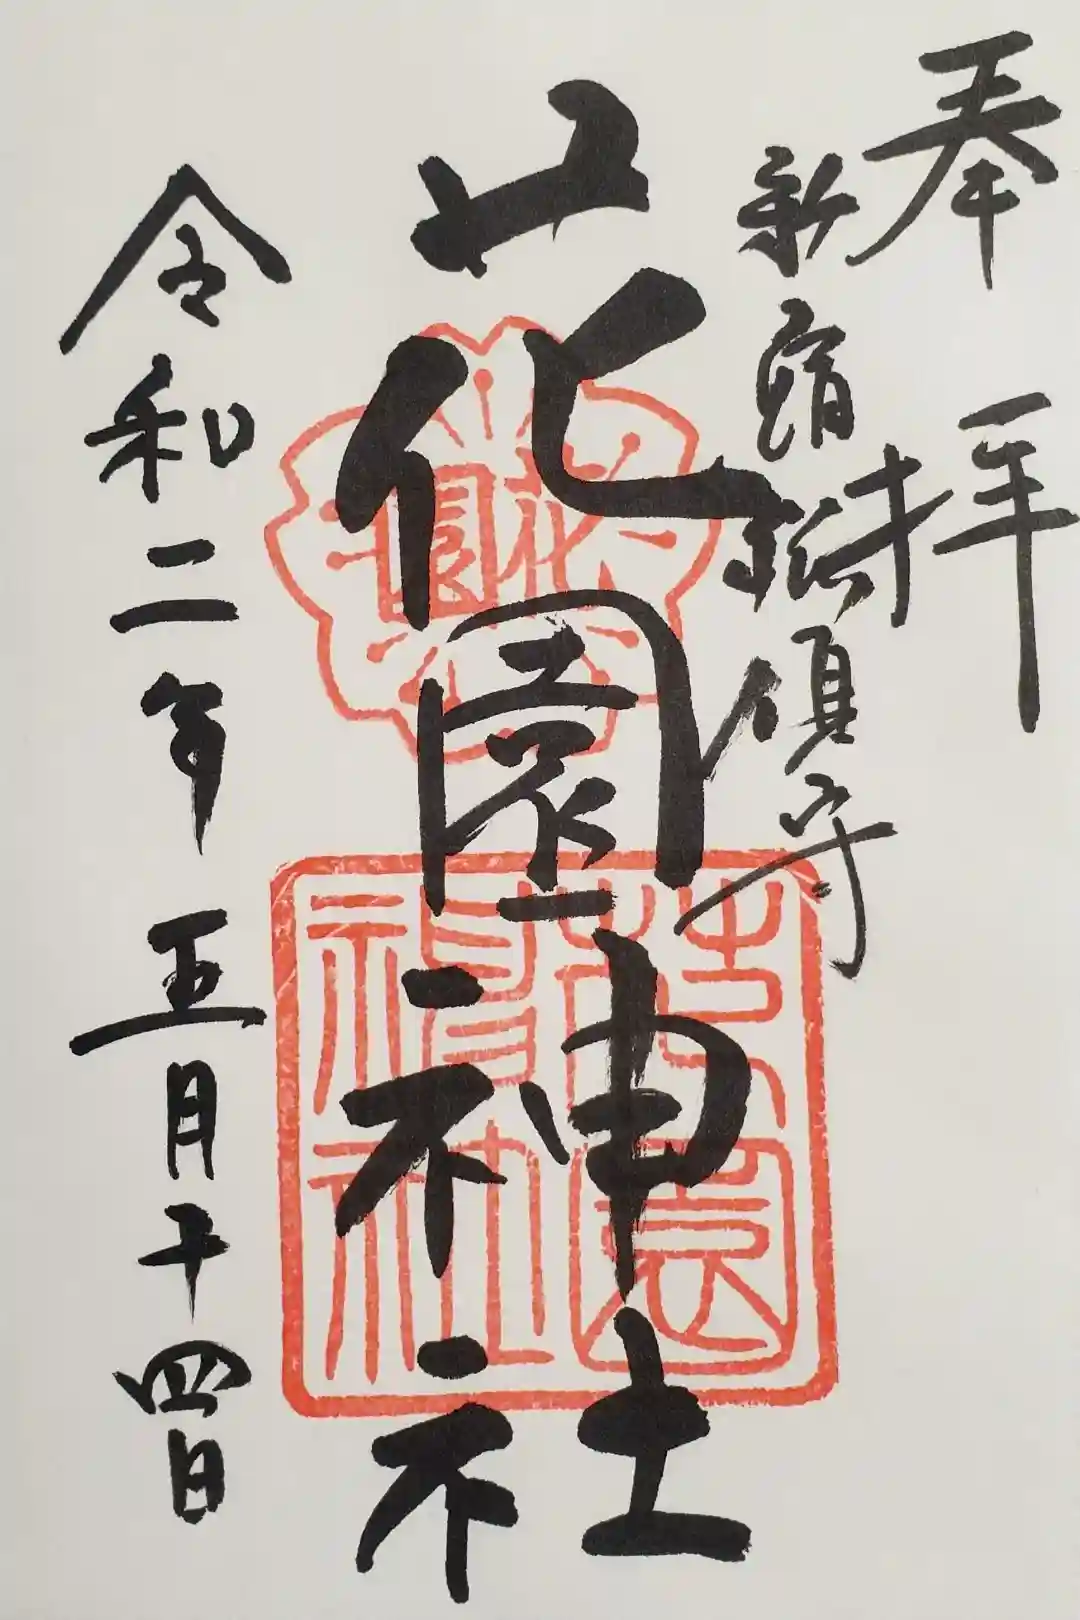 奉拝
新宿総鎮守
花園神社
令和二年五月十四日
花園
花園神社